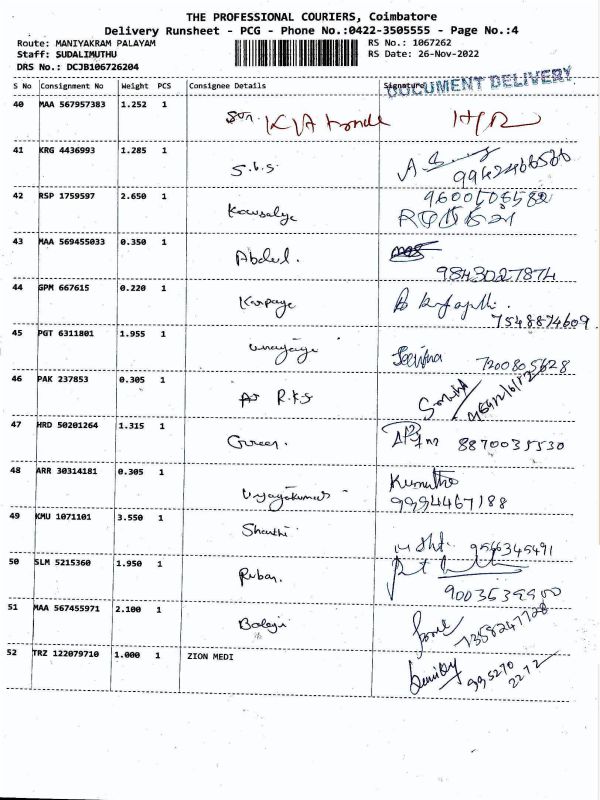 THE PROFESSIONAL COURIERS, Coimbatore
Delivery Runsheet - PCG - Phone No.:0422-3505555 - Page No.:4
Route: MANIYAKRAM PALAYAM RS No.: 1067262
Staff: SUDALIMUTHU RS Date: 26-Nov-2022
DRS No.: DCJB106726204
DOCUMENT DELIVERY
S No Consignment No Weight PCS Consignee Details Signature
40 MAA 567957383 1.252 1
41 KRG 4436993 1.285 1 S.b.S.
42 RSP 1759597 2.650 1 Kowsalye
43 MAA 569455033 0.350 1 Abdul.
9843027874
44 GPM 667615 0.220 1 Karpaga
7548874609
45 PGT 6311801 1.955 1
7200805628
46 PAK 237853 0.305 1 R.K.S
47 HRD 50201264 1.315 1 Green.
8870035530
48 ARR 30314181 0.305 1 Vijayakumar
9994467188
49 KMU 1071101 3.550 1 Shanthi
9566345491
50 SLM 5215360 1.950 1 Ruban.
51 MAA 567455971 2.100 1 Balaji
7358247728
52 TRZ 122079710 1.000 1 ZION MEDI
995270
2272